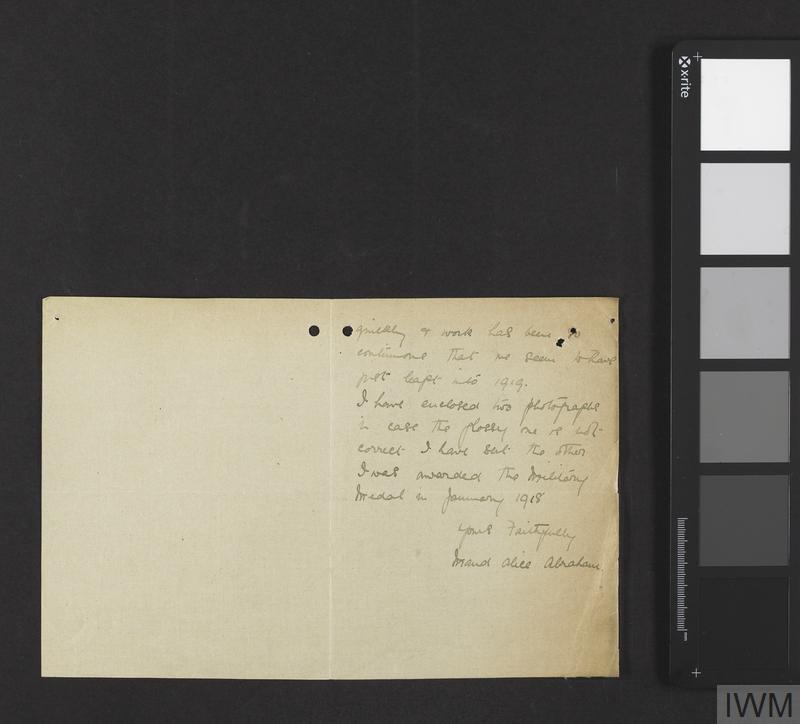 quickly & work has been so
continuous that we seem to have
just leapt into 1919.
I have enclosed two photographs
in case the glossy one is not
correct I have sent the other
I was awarded the Military
Medal in January 1918
Yours Faithfully
Maud Alice Abraham.
x-rite
IWM